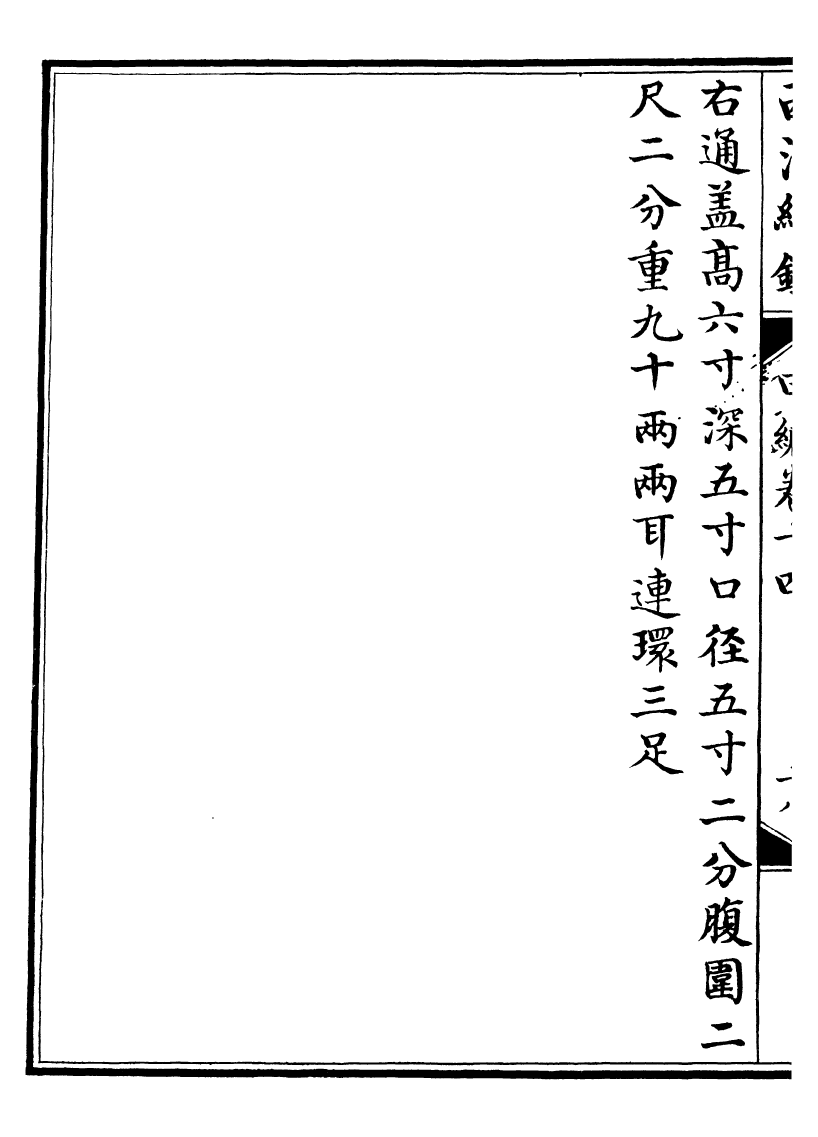 右通盖髙六寸深五寸口径五寸二分腹圍二
尺二分重九十兩兩耳連環三足